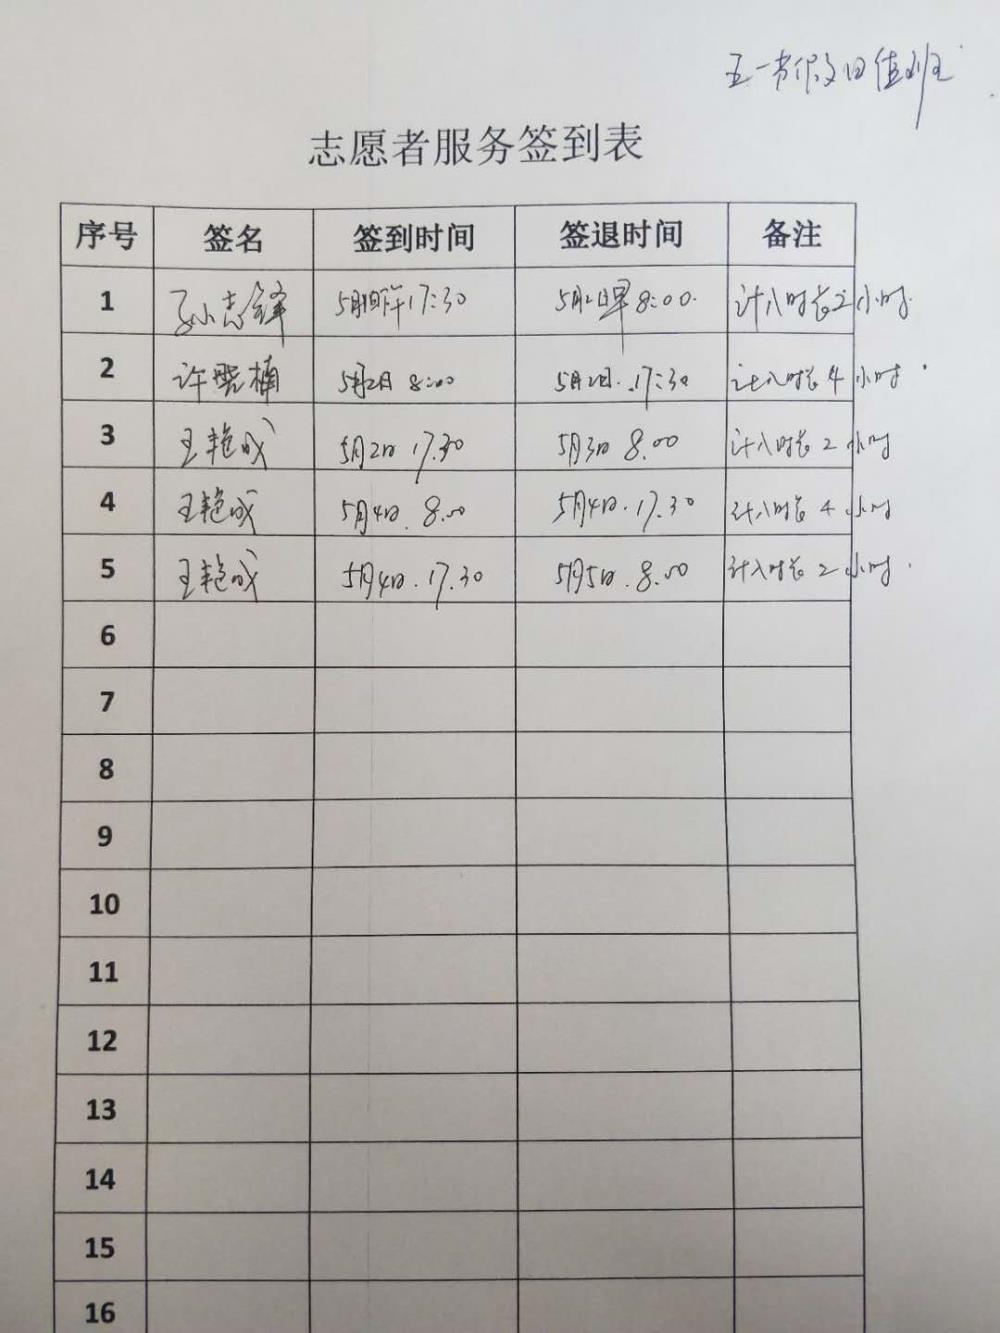 五一节假日值班
志愿者服务签到表
序号 签名 签到时间 签退时间 备注
1 孙志锋 5月1日下午17:30 5月2日早8:00. 计入时长2小时.
2 许晓楠 5月2日 8:00 5月2日.17:30 计入时长4小时.
3 王艳成 5月2日 17.30 5月3日 8.00 计入时长2小时
4 王艳成 5月4日.8.00 5月4日.17.30 计入时长4小时
5 王艳成 5月4日.17.30 5月5日.8.00 计入时长2小时.
6
7
8
9
10
11
12
13
14
15
16